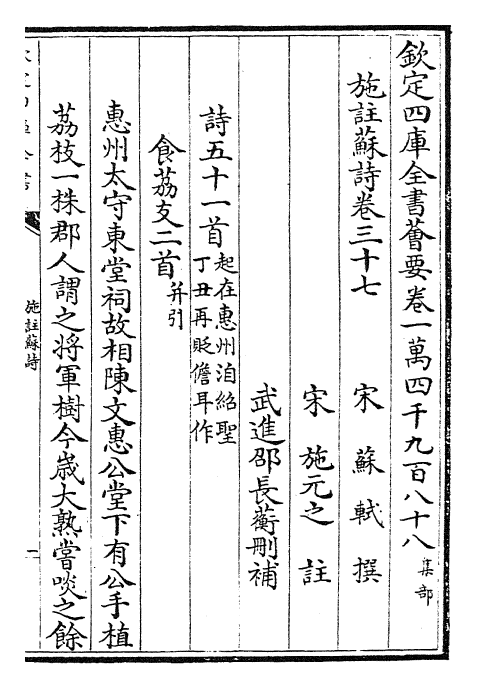 欽定四庫全書薈要卷一萬四千九百八十八 集部
施註蘇詩卷三十七
宋 蘇軾 撰
宋 施元之 註
武進邵長蘅刪補
詩五十一首 起在惠州洎紹聖
丁丑再貶儋耳作
食荔支二首 并引
惠州太守東堂祠故相陳文惠公堂下有公手植
荔枝一株郡人謂之將軍樹今歲大熟嘗啖之餘
施註蘇詩
一